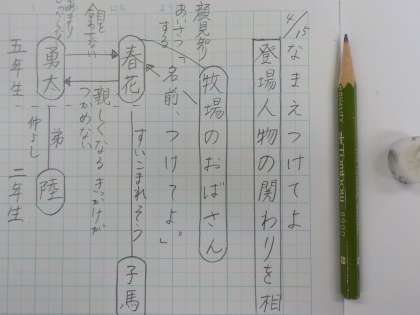 4/15
なまえつけてよ
登場人物の関わりを相
牧場のおばさん
顔見知り
あいさつ
する
「名前、つけてよ。」
春花
すいこまれそう
子馬
親しくなるきっかけが
つかめない
目を
合わせない
勇太
弟
仲よし
陸
五年生
二年生